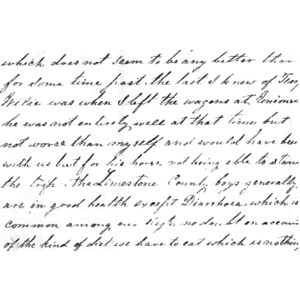 which does not seem to be any better than
for some time past. the last I knew of
Wilie was when I left the wagons at
he was not entirely well at that time but
not worse than myself and would have bee
with us but for his horse not being able to stan
the trip. the Limestone County boys generally
are in good health except Diarrhoea which is
common among our Regt, no doubt on accoun
of the kind of diet we have to eat which is nothin